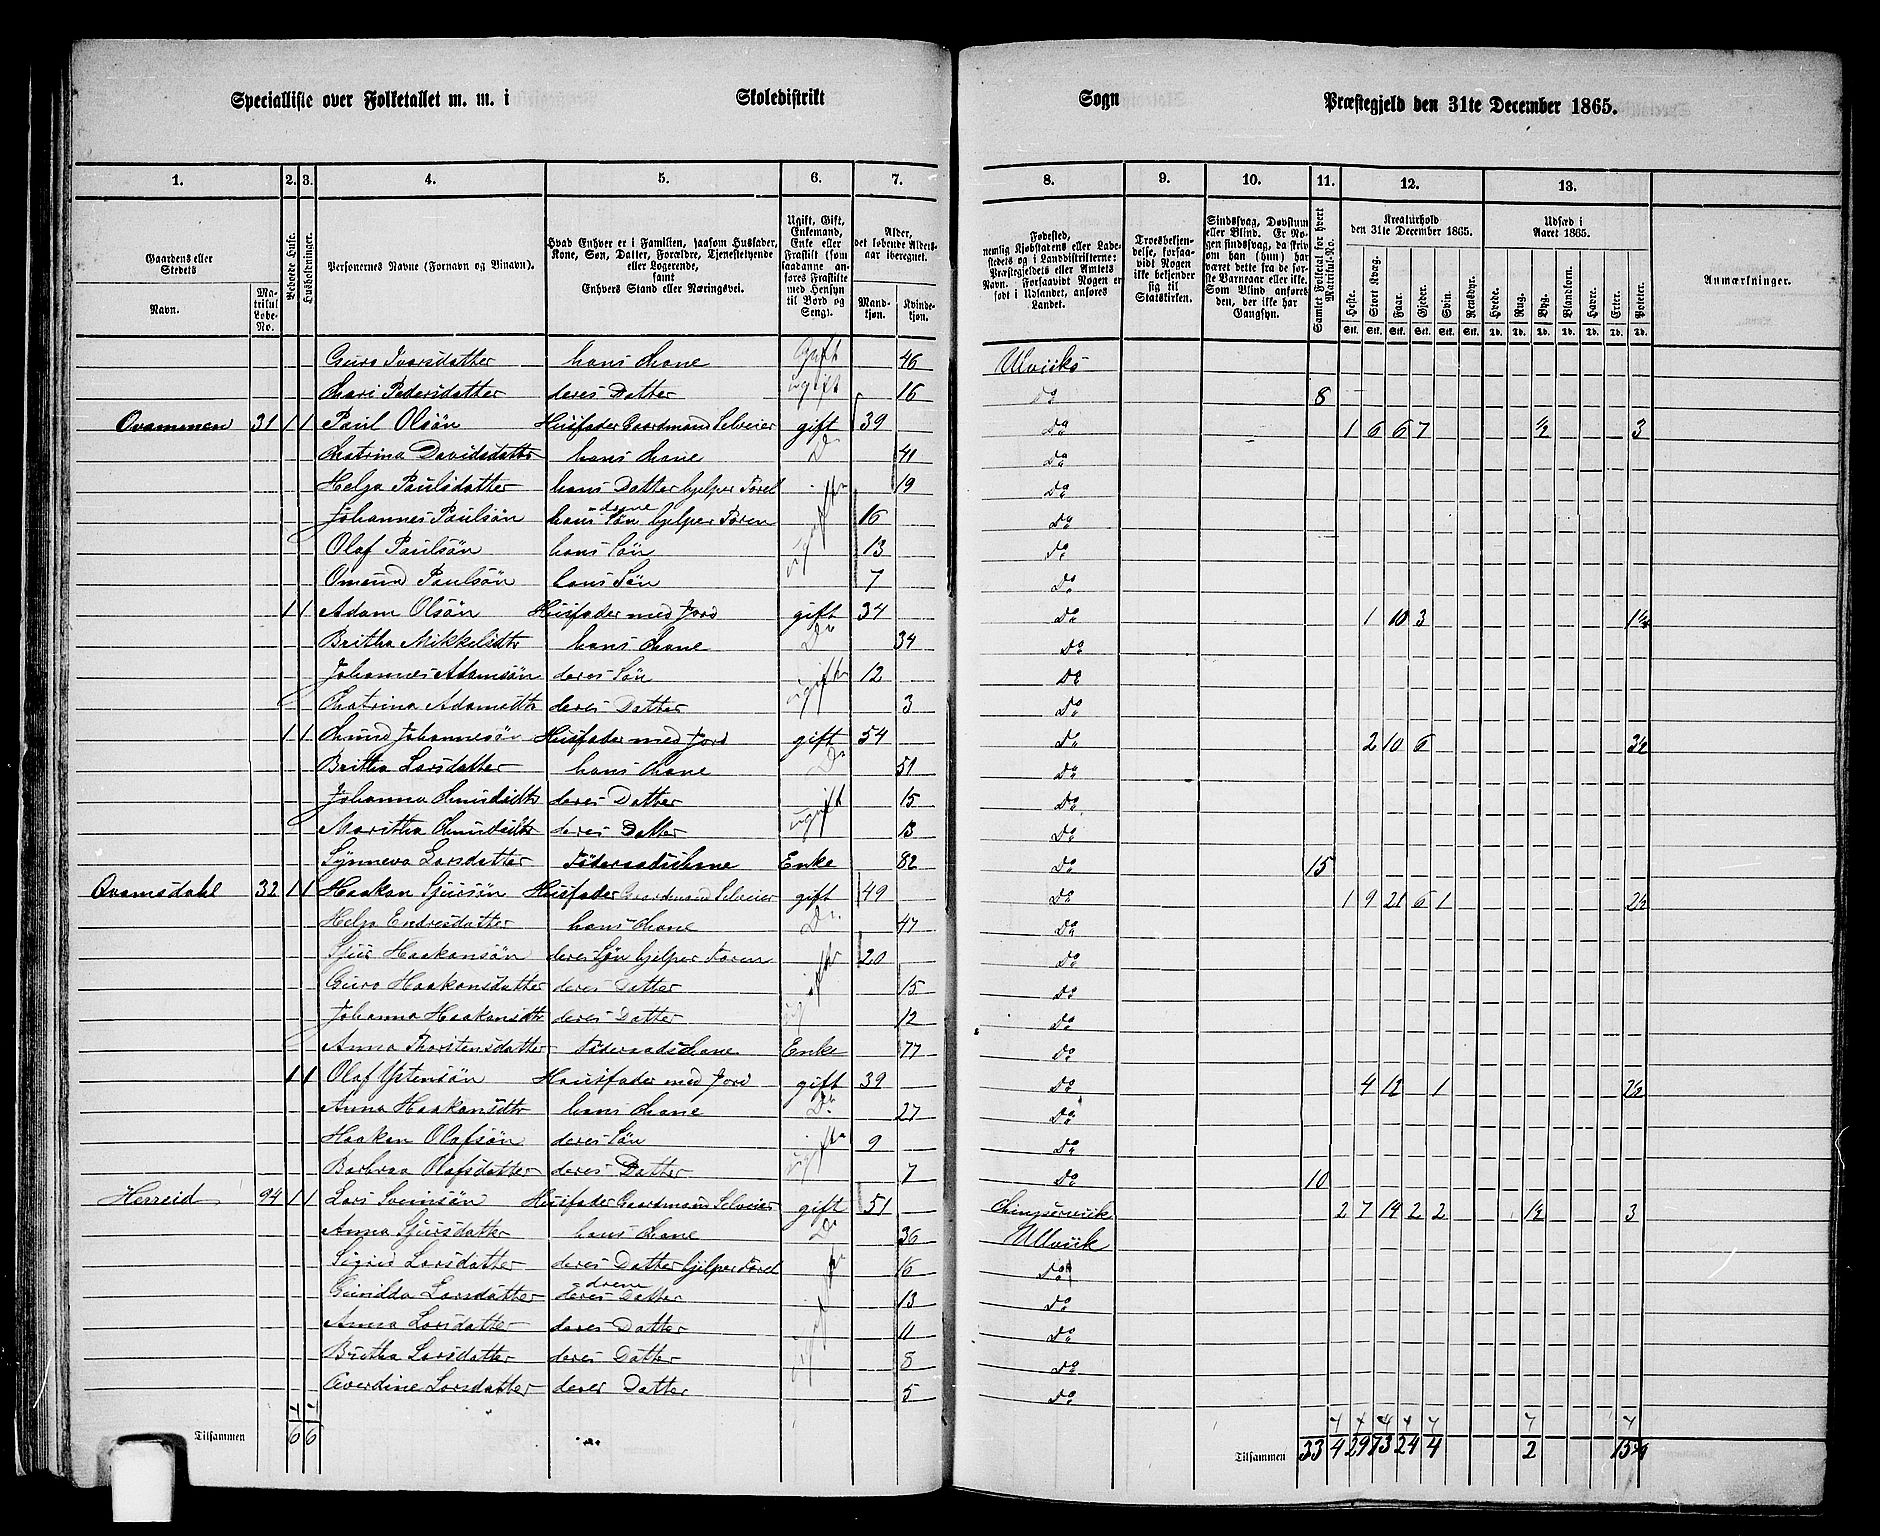 Specialliste over Folketallet m. m. i Skoledistrikt Sogn Præstegjeld den 31te December 1865.
1. 2. 3. 4. 5. 6. 7. 8. 9. 10. 11. 12. 13.
Gaardens eller Stedets
Navn.
Matrikul Løbe-No.
Beboede Huse.
Husholdninger.
Personernes Navne (Fornavn og Binavn).
Hvad Enhver er i Familien, saasom Husfader, Kone, Søn, Datter, Forældre, Tjenestetyende eller Logerende,
samt
Enhvers Stand eller Næringsvei.
Ugift, Gift, Enkemand, Enke eller Fraskilt (som saadanne anføres Fraskilte med Hensyn til Bord og Seng).
Alder, det løbende Alders-aar iberegnet.
Mand-kjøn. Kvinde-kjøn.
Fødested, nemlig Kjøbstadens eller Ladestedets og i Landdistrikterne: Præstegjeldets eller Amtets Navn. Forsaavidt Nogen er født i Udlandet, anføres Landet.
Troesbekjendelse, forsaavidt Nogen ikke bekjender sig til Statskirken.
Sindssvag, Døvstum eller Blind. Er Nogen sindssvag, da skrives om han (hun) har været dette fra de første Barneaar eller ikke. Som Blind anføres den, der ikke har Gangsyn.
Samlet Folketal for hvert Matrikul-No.
Kreaturhold den 31te December 1865.
Heste. Stort Kvæg. Faar. Gjeder. Svin. Rensdyr.
Udsæd i Aaret 1865.
Hvede. Rug. Byg. Blandkorn. Havre. Erter. Poteter.
Anmærkninger.
Guro Ivarsdatter hans Kone Gift 46 Ulviks
Kari Pedersdatter deres Datter ugift 16 Do 8
Qvammen 31 1 1 Paul Olsøn Husfader Gaardmand Selveier gift 39 Do 1 6 6 7 ½ 3
Katrina Davidsdattr hans Kone Do 41 Do
Helga Paulsdatter hans Datter hjelper Foreldrene 19 Do
Johannes Paulsøn hans Søn hjelper Faren ugifte 16 Do
Olaf Paulsøn hans Søn 13 Do
Omund Paulsøn hans Søn 7 Do
1 1 Adam Olsøn Husfader med Jord gift 34 Do 1 10 3 1¼
Britha Mikkelsdtr hans Kone Do 34 Do
Johannes Adamsøn deres Søn ugifte 12 Do
Katrina Adamsdtr deres Datter 3 Do
1 1 Knud Johannesøn Husfader med Jord gift 54 Do 2 10 6 3½
Britha Larsdatter hans Kone Do 51 Do
Johanna Knudsdtr deres Datter ugift 15 Do
Maritha Knudsdtr deres Datter 13 Do
Synneva Larsdatter Føderaadskone Enke 82 Do 15
Qvamsdahl 32 1 1 Haakon Sjursøn Husfader Gaardmand Selveier gift 49 Do 1 9 21 6 1 2½
Helga Endresdatter hans Kone Do 47 Do
Sjur Haakonsøn deres Søn hjelper Faren ugifte 20 Do
Guro Haakonsdatter deres Datter 15 Do
Johanna Haakonsdtr deres Datter 12 Do
Anna Thorstensdatter Føderaadskone Enke 77 Do
1 1 Olaf Ystensøn Hausfader med Jord gift 39 Do 4 12 1 2½
Anna Haakonsdtr hans Kone Do 27 Do
Haakon Olafsøn deres Søn ugifte 9 Do
Barbraa Olafsdatter deres Datter 7 Do 10
Herreid 94 1 1 Lars Sveinsøn Husfader Gaardmand Selveier gift 51 Kingservik 2 7 14 2 2 ½ 3
Anna Sjursdatter hans Kone Do 36 Ullvik
Sigrid Larsdatter deres Datter hjelper Foreldrene ugifte 16 Do
Gunilda Larsdatter deres Datter 13 Do
Anna Larsdatter deres Datter 11 Do
Britha Larsdatter deres Datter 8 Do
Averdine Larsdatter deres Datter 5 Do
Tilsammen 6 6 Tilsammen 33 4 29 73 24 4 2 15¾